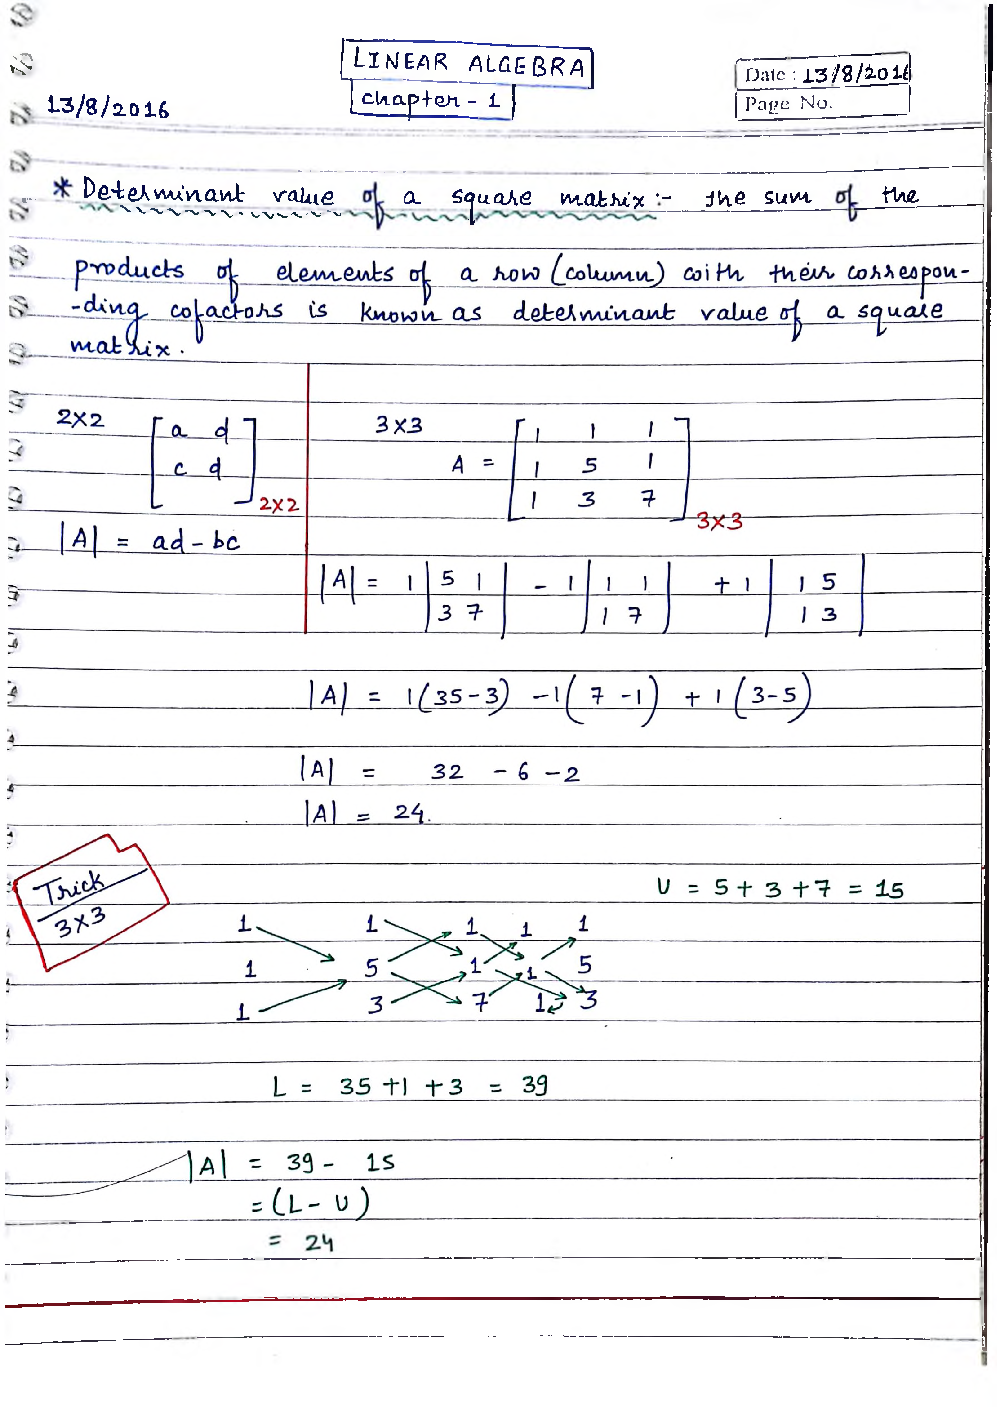 LINEAR ALGEBRA
chapter - 1
Date : 13/8/2016
Page No.
13/8/2016
* Determinant value of a square matrix :- the sum of the
products of elements of a row (column) with their correspon-
-ding cofactors is known as determinant value of a square
matrix.
2×2
a d
c d
2×2
|A| = ad - bc
3×3
A =
1 1 1
1 5 1
1 3 7
3×3
|A| = 1 |5 1| - 1 |1 1| + 1 |1 5|
|3 7| |1 7| |1 3|
|A| = 1(35-3) -1(7-1) + 1(3-5)
|A| = 32 - 6 - 2
|A| = 24.
Trick
3×3
U = 5 + 3 + 7 = 15
1 1 1 1 1
1 5 1 1 5
1 3 7 1 3
L = 35 + 1 + 3 = 39
|A| = 39 - 15
= (L - U)
= 24